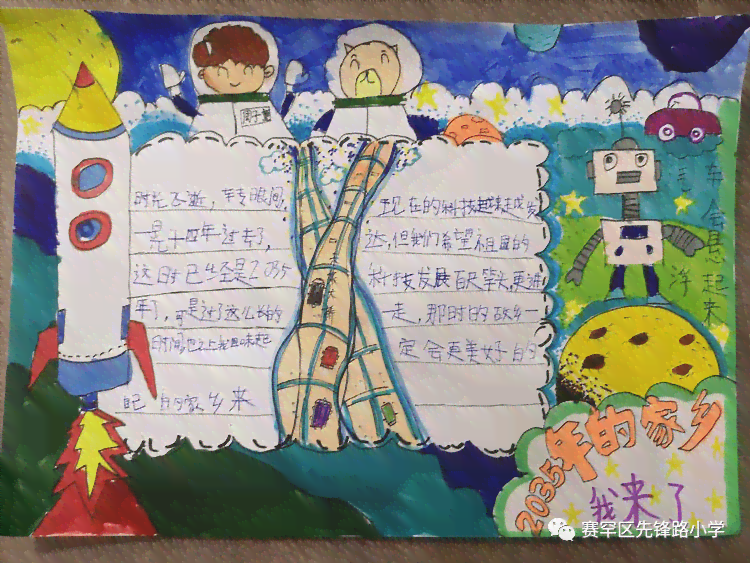 时光飞逝，转眼间，
一晃十四年过去了，
这时已经是2035
年了，可是过了这么长的
时间
自己的家乡来
现在的科技越来越发
达，但我们希望祖国的
科技发展百尺竿头，更进
一走，那时的故乡一
定会更美好的
车会悬
起来
2035年的家乡
我来了
赛罕区先锋路小学